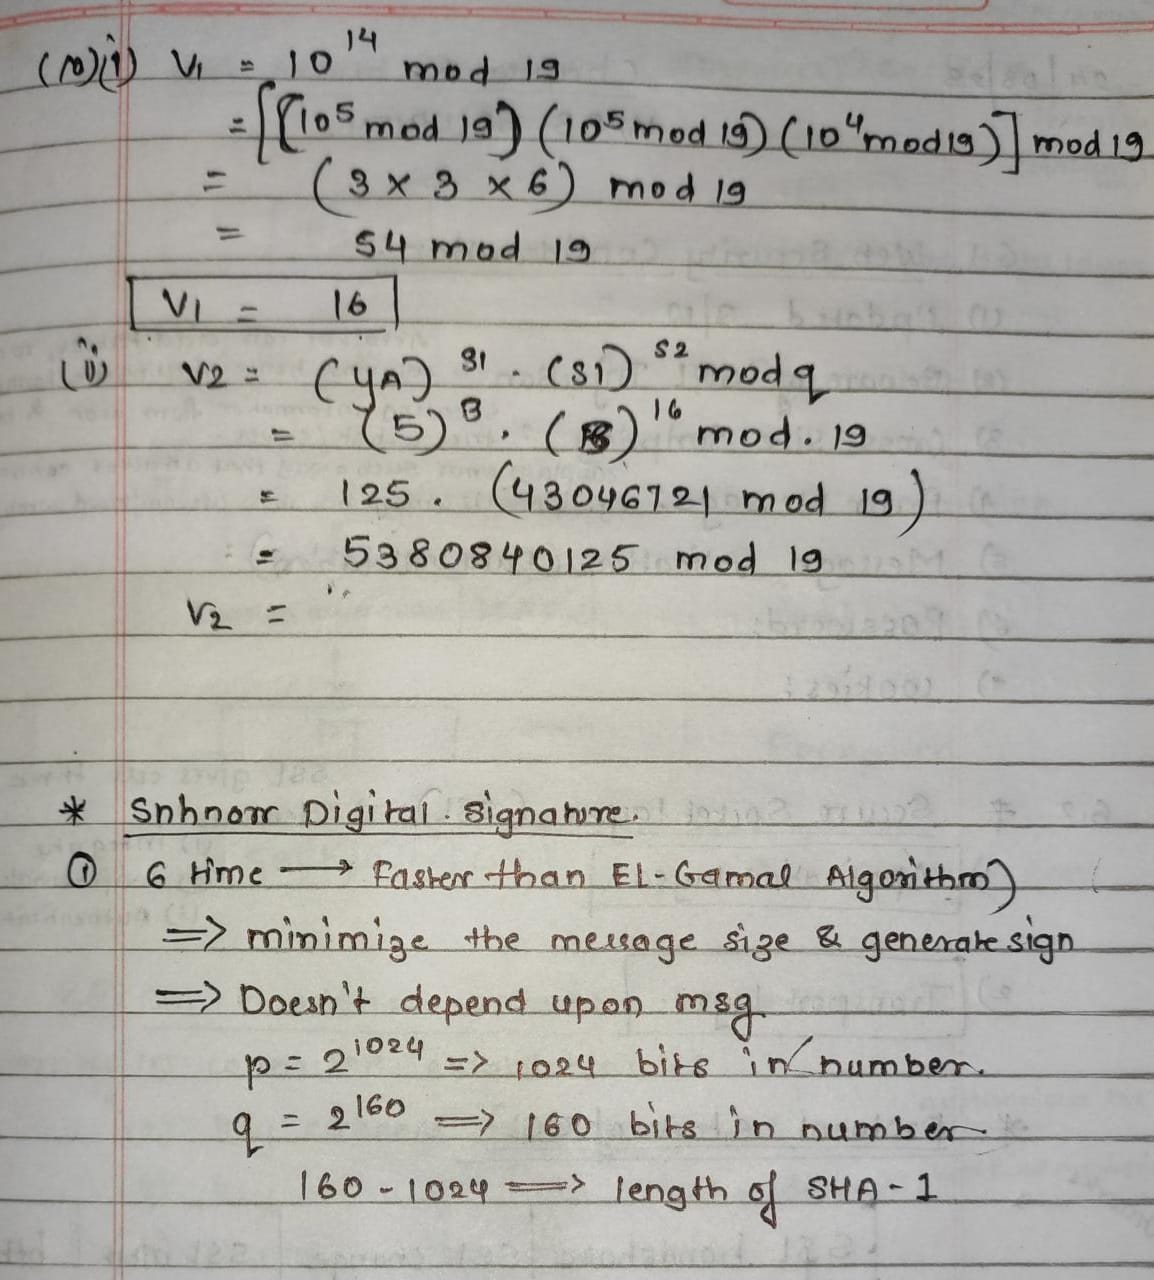 (10)(i) V1 = 10^14 mod 19
= [(10^5 mod 19) (10^5 mod 19) (10^4 mod 19)] mod 19
= (3 x 3 x 6) mod 19
= 54 mod 19
V1 = 16
(ii) V2 = (YA)^S1 . (S1)^S2 mod q
= (5)^3 . (3)^16 mod. 19
= 125 . (43046721 mod 19)
= 5380840125 mod 19
V2 =
* Snhnorr Digital Signature.
① 6 time → Faster than EL-Gamal Algorithm)
⇒ minimize the message size & generate sign
⇒ Doesn't depend upon msg
p = 2^1024 => 1024 bits in number.
q = 2^160 ⇒ 160 bits in number
160 - 1024 ⇒ length of SHA-1